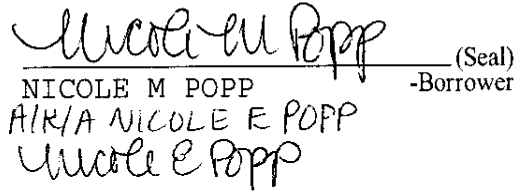 Nicole M Popp
(Seal)
NICOLE M POPP -Borrower
A/K/A NICOLE E POPP
Nicole E Popp